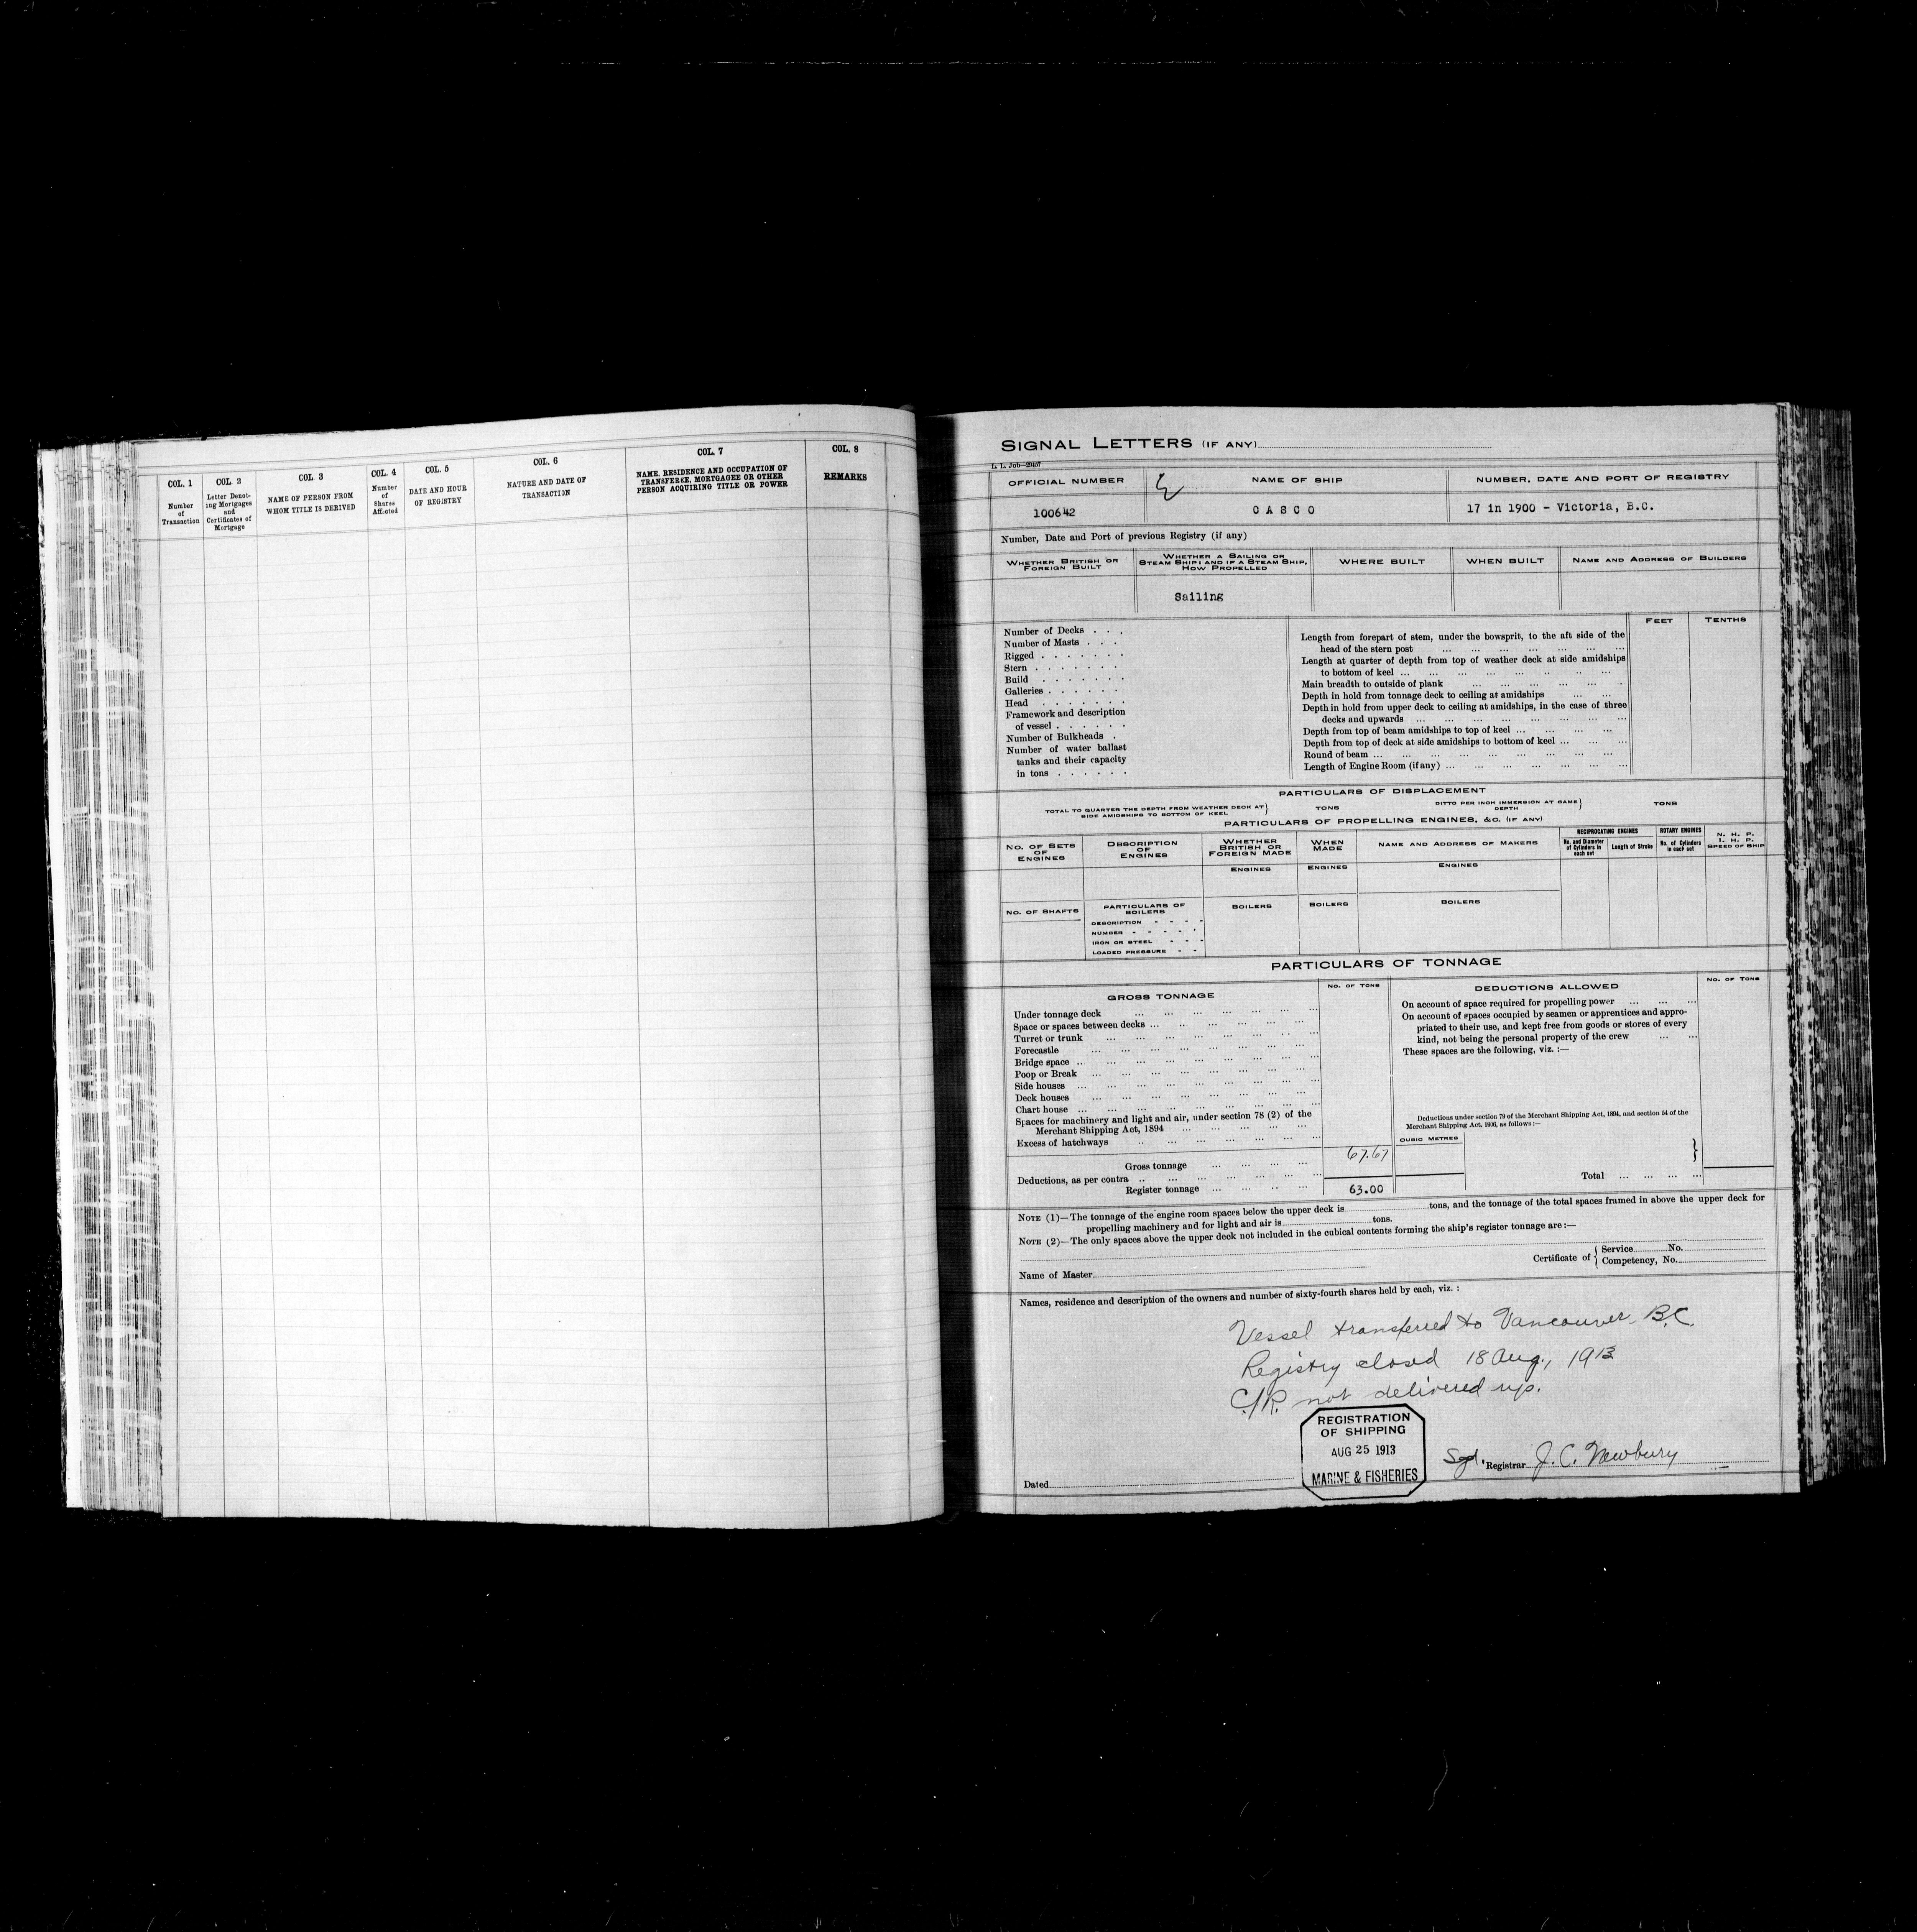 COL. 1
Number
of
Transaction
COL. 2
Letter Denot-
ing Mortgages
and
Certificates of
Mortgage
COL. 3
NAME OF PERSON FROM
WHOM TITLE IS DERIVED
COL. 4
Number
of
Shares
Affected
COL. 5
DATE AND HOUR
OF REGISTRY
COL. 6
NATURE AND DATE OF
TRANSACTION
COL. 7
NAME, RESIDENCE AND OCCUPATION OF
TRANSFEREE, MORTGAGEE OR OTHER
PERSON ACQUIRING TITLE OR POWER
COL. 8
REMARKS
SIGNAL LETTERS (IF ANY)
L. L. Job—29157
OFFICIAL NUMBER
NAME OF SHIP
NUMBER, DATE AND PORT OF REGISTRY
100642
CASCO
17 in 1900 - Victoria, B.C.
Number, Date and Port of previous Registry (if any)
WHETHER BRITISH OR
FOREIGN BUILT
WHETHER A SAILING OR
STEAM SHIP; AND IF A STEAM SHIP,
HOW PROPELLED
WHERE BUILT
WHEN BUILT
NAME AND ADDRESS OF BUILDERS
Sailing
Number of Decks . . .
Number of Masts . . .
Rigged . . . . . . .
Stern . . . . . . .
Build . . . . . . .
Galleries . . . . . .
Head . . . . . . .
Framework and description
of vessel . . . . . .
Number of Bulkheads .
Number of water ballast
tanks and their capacity
in tons . . . . . .
FEET
TENTHS
Length from forepart of stem, under the bowsprit, to the aft side of the
head of the stern post
Length at quarter of depth from top of weather deck at side amidships
to bottom of keel
Main breadth to outside of plank
Depth in hold from tonnage deck to ceiling at amidships
Depth in hold from upper deck to ceiling at amidships, in the case of three
decks and upwards
Depth from top of beam amidships to top of keel
Depth from top of deck at side amidships to bottom of keel
Round of beam
Length of Engine Room (if any)
PARTICULARS OF DISPLACEMENT
TOTAL TO QUARTER THE DEPTH FROM WEATHER DECK AT
SIDE AMIDSHIPS TO BOTTOM OF KEEL
TONS
DITTO PER INCH IMMERSION AT SAME
DEPTH
TONS
PARTICULARS OF PROPELLING ENGINES, &C. (IF ANY)
NO. OF SETS
OF
ENGINES
DESCRIPTION
OF
ENGINES
WHETHER
BRITISH OR
FOREIGN MADE
WHEN
MADE
NAME AND ADDRESS OF MAKERS
RECIPROCATING ENGINES
No. and Diameter
of Cylinders in
each set
Length of Stroke
ROTARY ENGINES
No. of Cylinders
in each set
N. H. P.
I. H. P.
SPEED OF SHIP
ENGINES
ENGINES
ENGINES
NO. OF SHAFTS
PARTICULARS OF
BOILERS
BOILERS
BOILERS
BOILERS
DESCRIPTION
NUMBER
IRON OR STEEL
LOADED PRESSURE
PARTICULARS OF TONNAGE
GROSS TONNAGE
NO. OF TONS
DEDUCTIONS ALLOWED
NO. OF TONS
Under tonnage deck
Space or spaces between decks
Turret or trunk
Forecastle
Bridge space
Poop or Break
Side houses
Deck houses
Chart house
Spaces for machinery and light and air, under section 78 (2) of the
Merchant Shipping Act, 1894
Excess of hatchways
Gross tonnage
67.67
Deductions, as per contra
Register tonnage
63.00
On account of space required for propelling power
On account of spaces occupied by seamen or apprentices and appro-
priated to their use, and kept free from goods or stores of every
kind, not being the personal property of the crew
These spaces are the following, viz. :—
Deductions under section 79 of the Merchant Shipping Act, 1894, and section 54 of the
Merchant Shipping Act, 1906, as follows :—
CUBIC METRES
Total
NOTE (1)—The tonnage of the engine room spaces below the upper deck is tons, and the tonnage of the total spaces framed in above the upper deck for
propelling machinery and for light and air is tons.
NOTE (2)—The only spaces above the upper deck not included in the cubical contents forming the ship's register tonnage are :—
Name of Master
Certificate of { Service No.
Competency, No.
Names, residence and description of the owners and number of sixty-fourth shares held by each, viz. :
Vessel transferred to Vancouver B.C.
Registry closed 18 Aug., 1913
C/R. not delivered up.
REGISTRATION
OF SHIPPING
AUG 25 1913
MARINE & FISHERIES
Dated
Sgd. Registrar J. C. Newbury